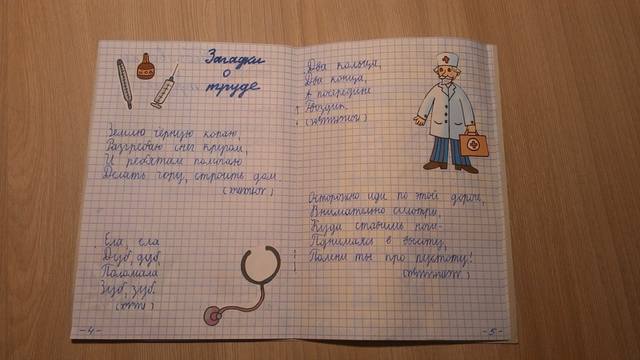 Загадки
о
труде
Землю чёрную копаю,
Разгребаю снег кругом,
И ребятам помогаю
Делать гору, строить дом.
Ела, ела
Дуб, дуб,
Поломала
Зуб, зуб.
- 4 -
Два кольца,
Два конца,
А посередине
Гвоздик.
Осторожно иди по этой дороге,
Внимательно смотри,
Куда ставишь ноги -
Поднимаясь в высоту,
Помни ты про пустоту!
- 5 -